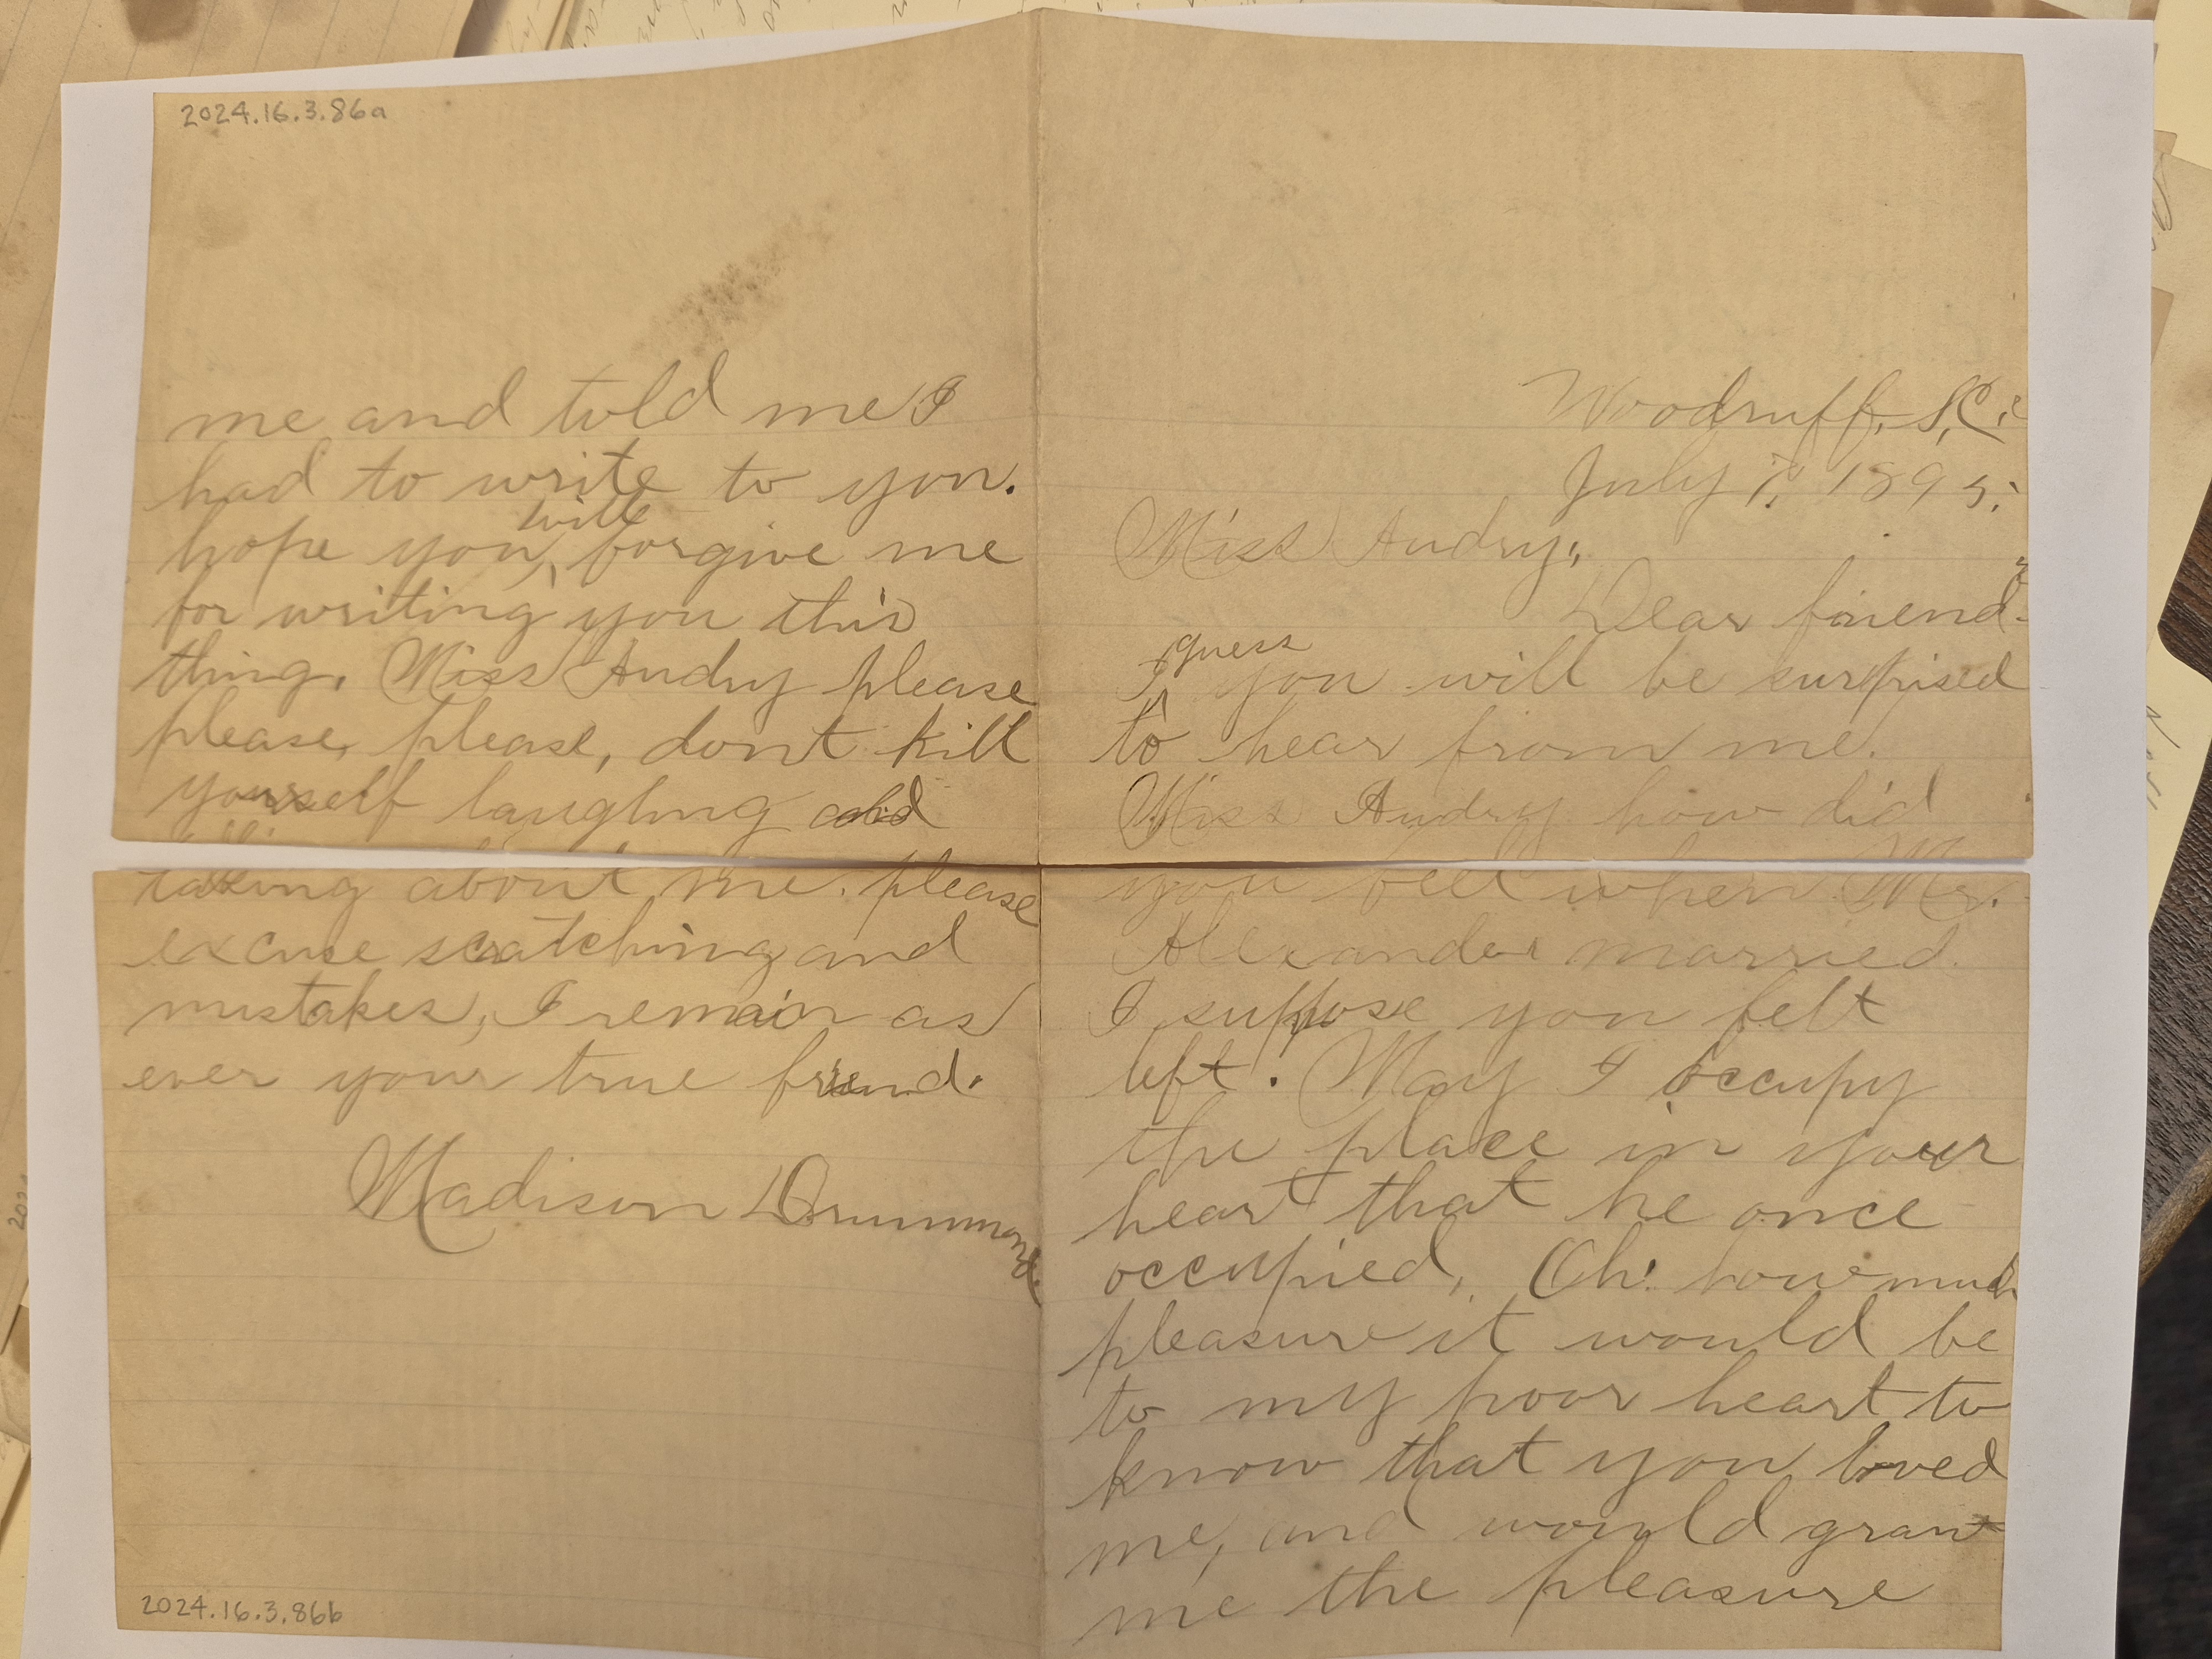 2024.16.3.86a
Woodruff, S.C.
July 7, 1895.
Miss Audry,
Dear friend
I guess you will be surprised
to hear from me.
Miss Audry how did
you feel when Mr.
Alexander married.
I suppose you felt
left. May I occupy
the place in your
heart that he once
occupied, Oh! how much
pleasure it would be
to my poor heart to
know that you loved
me, and would grant
me the pleasure
me and told me I
had to write to you.
hope you will forgive me
for writing you this
thing. Miss Audry please
please, please, dont kill
yourself laughing and
talking about me. please
excuse scratching and
mistakes, I remain as
ever your true friend.
Madison Drummond.
2024.16.3.86b